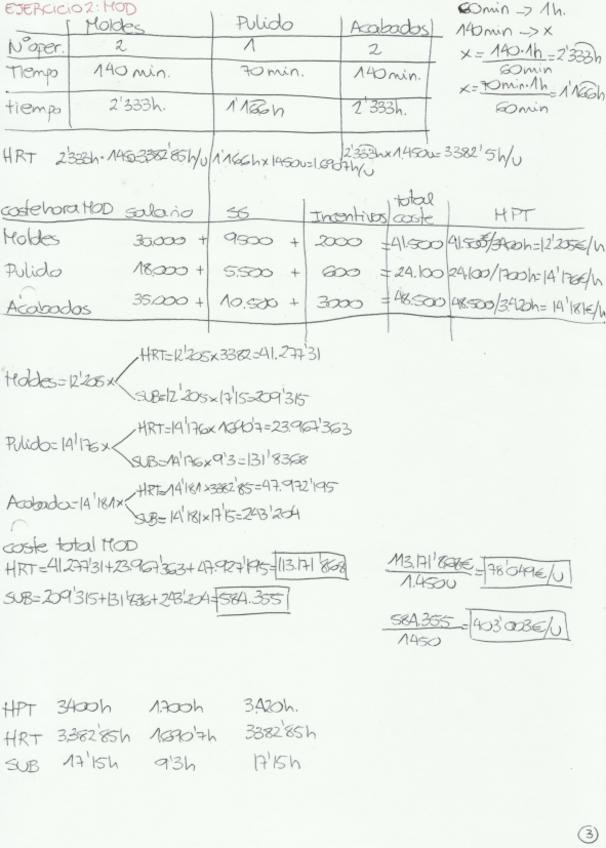 EJERCICIO 2: MOD
Moldes Pulido Acabados
Nº oper. 2 1 2
Tiempo 140 min. 70 min. 140 min.
tiempo 2'333h. 1'166h 2'333h.
60min -> 1h.
140min -> x
x = 140·1h / 60min = 2'333h
x = 70min·1h / 60min = 1'166h
HRT 2'333h·1450=3382'85h/u 1'166h x 1450u=1.690'7h/u 2'333h x 1.450u=3382'5h/u
coste hora MOD salario SS Incentivos total coste HPT
Moldes 30.000 + 9500 + 2000 = 41.500 41.500/3400h=12'205€/h
Pulido 18.000 + 5.500 + 600 = 24.100 24.100/1700h=14'176€/h
Acabados 35.000 + 10.500 + 3000 = 48.500 48.500/3.420h=14'181€/h
HRT=12'205x3382=41.277'31
Moldes=12'205x
SUB=12'205x17'15=209'315
HRT=14'176x1690'7=23.967'363
Pulido=14'176x
SUB=14'176x9'3=131'8368
HRT=14'181x3382'85=47.972'195
Acabado=14'181x
SUB=14'181x17'15=243'204
coste total MOD
HRT=41.277'31+23.967'363+47.927'195=113.171'868
SUB=209'315+131'836+243'204=584.355
113.171'868€ / 1.450u = 78'049€/u
584.355 / 1450 = 403'003€/u
HPT 3400h 1.700h 3.420h.
HRT 3.382'85h 1690'7h 3382'85h
SUB 17'15h 9'3h 17'15h
3